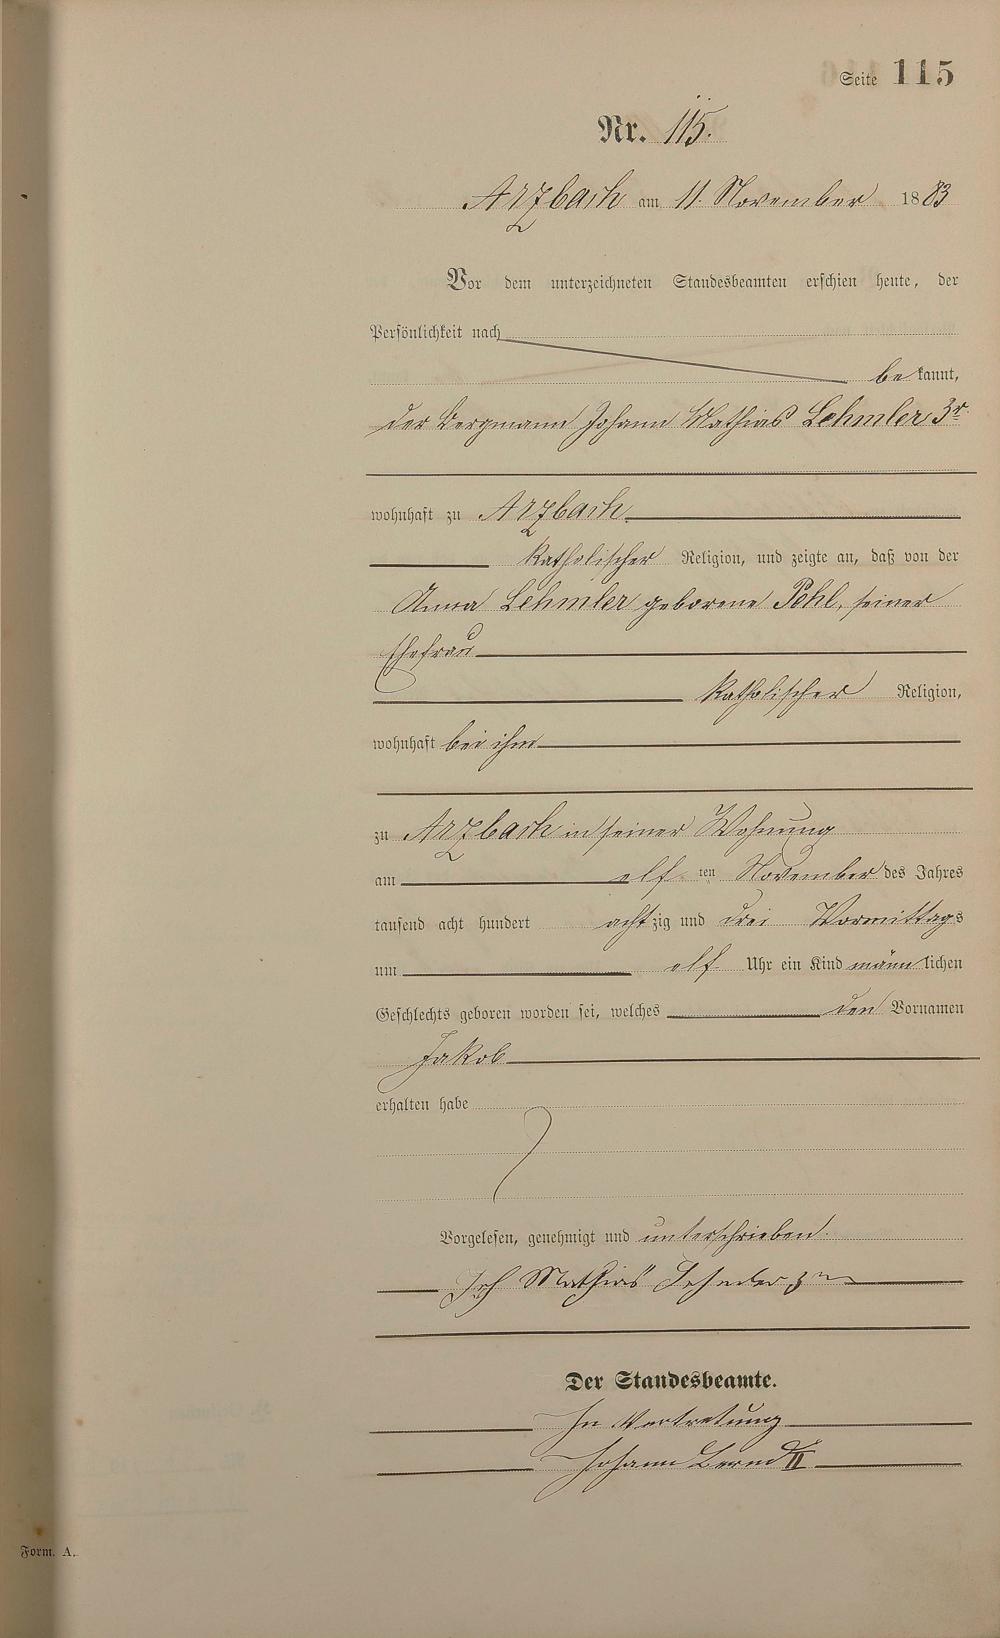 Seite 115
Nr. 115.
Arzbach am 11. November 1883
Vor dem unterzeichneten Standesbeamten erschien heute, der
Persönlichkeit nach
bekannt,
der Bergmann Johann Mathias Lehmler 3r
wohnhaft zu Arzbach
katholischer Religion, und zeigte an, daß von der
Anna Lehmler geborene Pohl, seiner
Ehefrau
katholischer Religion,
wohnhaft bei ihm
zu Arzbach in seiner Wohnung
am elf ten November des Jahres
tausend acht hundert achtzig und drei Vormittags
um elf Uhr ein Kind männlichen
Geschlechts geboren worden sei, welches den Vornamen
Jakob
erhalten habe
Vorgelesen, genehmigt und unterschrieben.
Joh Mathias Lehmler 3r
Der Standesbeamte.
In Vertretung
Johann Bernd II
Form. A.